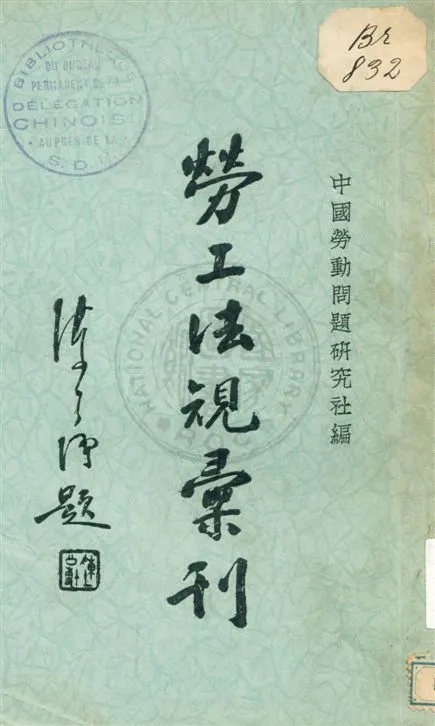 Br
832
BIBLIOTHÈQUE
DU BUREAU
PERMANENT DE LA
DÉLÉGATION
CHINOISE
AUPRÈS DE LA
S. D. N.
中國勞動問題研究社編
勞工法規彙刊
陳公博題
NATIONAL CENTRAL LIBRARY